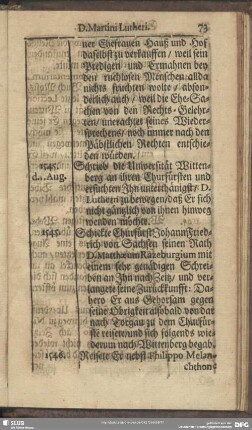 D. Martini Lutheri. 73
ner Ehefrauen Hauß und Hof
daselbst zu verkauffen / weil sein
Predigen und Ermahnen bey
den ruchlosen Menschen allda
nichts fruchten wolte / abson-
derlich auch / weil die Ehe-Sa-
chen von den Rechts-Gelehr-
ten / unerachtet seines Wieder-
sprechens / noch immer nach den
Päbstlichen Rechten entschie-
den würden.
1545. Schrieb die Universität Witten-
d. Aug. berg an ihren Churfürsten und
ersuchten Ihn unterthänigst / D.
Luthern zu bewegen / daß Er sich
nicht gäntzlich von ihnen hinweg
wenden möchte.
1545. Schickte Churfürst Johann Fried-
rich von Sachsen seinen Rath
D. Matthæum Razeburgium mit
einem sehr gnädigen Schrei-
ben an Ihn nach Zeitz / und ver-
langete seine Zurückkunfft: Da-
hero Er aus Gehorsam gegen
seine Obrigkeit alsobald von dar
nach Torgau zu dem Churfür-
sten reisete und sich folgends wie-
derum nach Wittenberg begab.
1546. Reisete Er nebst Philippo Melan-
chthone